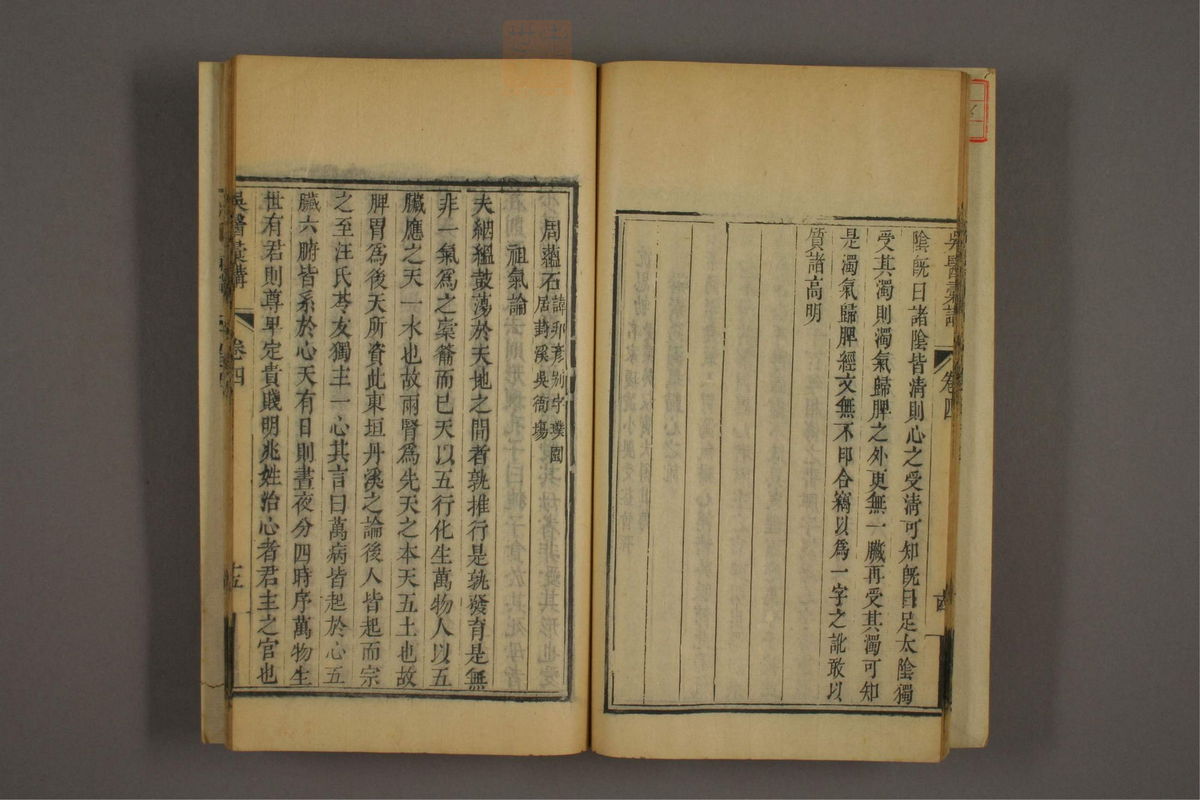 吳醫彙講
卷四
陰旣曰諸陰皆淸則心之受淸可知旣曰足太陰獨
受其濁則濁氣歸脾之外更無一臟再受其濁可知
是濁氣歸脾經文無不印合竊以爲一字之訛敢以
質諸高明
周蘊石
諱
居葑溪吳衙場
祖氣論
夫絪縕鼓蕩於天地之間者孰推行是孰發育是無
非一氣爲之橐籥而已天以五行化生萬物人以五
臟應之天一水也故兩腎爲先天之本天五土也故
脾胃爲後天所資此東垣丹溪之論後人皆起而宗
之至汪氏苓友獨主一心其言曰萬病皆起於心五
臟六腑皆系於心天有日則晝夜分四時序萬物生
世有君則尊卑定貴賤明兆姓治心者君主之官也
吳醫彙講
卷四
十五